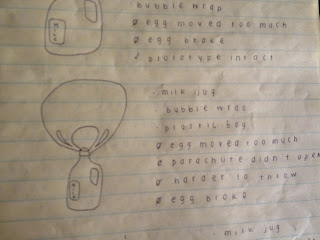 · bubble wrap
ø egg moved too much
ø egg broke
✓ prototype intact
· milk jug
· bubble wrap
· plastic bag
ø egg moved too much
ø parachute didn't open
ø harder to throw
ø egg broke
· milk jug